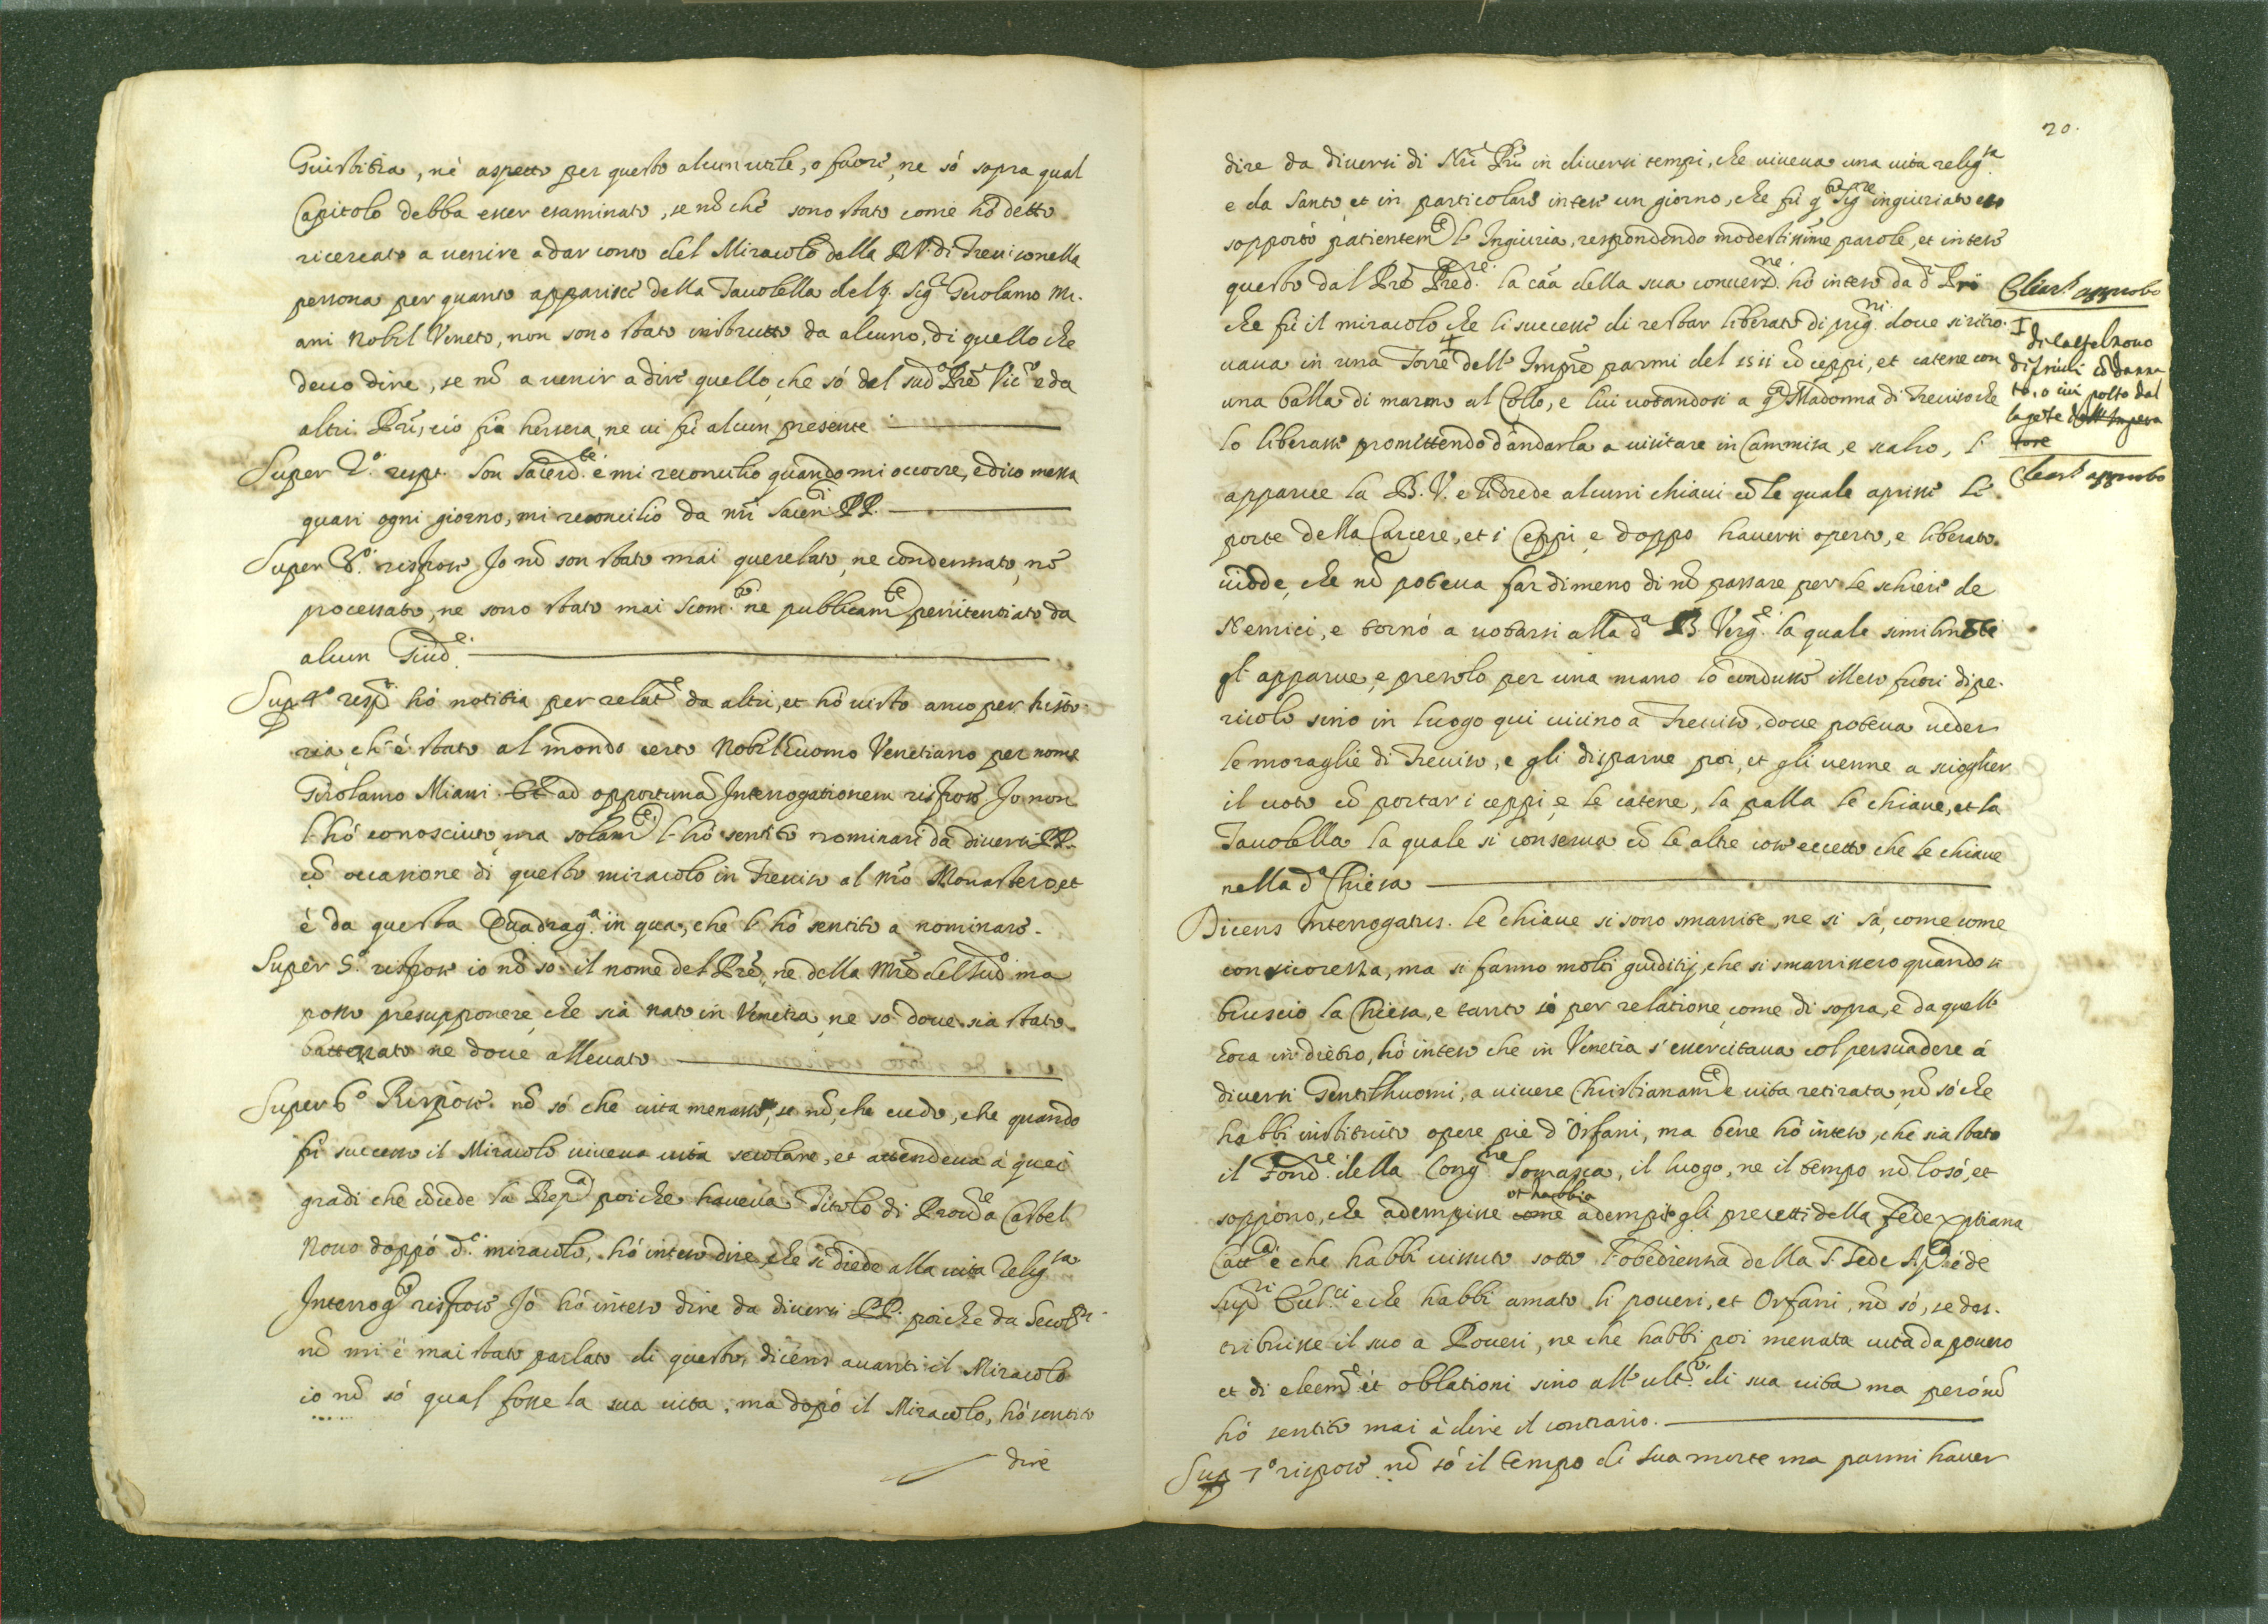 Giustitia, nè aspetto per questo alcun utile, o favore, ne só sopra qual
Capitolo debba esser esaminato, se nõ che sono stato come hó detto
ricercato a venire a dar conto del Miracolo della B.V. di Trevi so nella
persona per quanto apparisce della Tavolella del q. Sig.r Girolamo Mi-
ani Nobil Veneto, non sono stato instrutto da alcuno, di quello che
devo dire, se nõ a venir a dire quello, che só del sud.o Prẽ Vic.o e da
altri Prĩ, ció fú hersera, ne vi fú alcun presente
Super 2.o resp.t Son Sacerd.te e mi reconcilio quando mi occorre, e dico messa
quasi ogni giorno, mi reconcilio da nr̃i Sacerd.i PP.
Super 3.o rispose Io nõ son stato mai querelato, ne condennato, ne
processato, ne sono stato mai Scom.to ne pubblicam.te penitentiato da
alcun Giud.e
Sup 4.o resp.t hó notitia per relat.e da altri, et hó visto anco per histo-
ria, ch'é stato al mondo certo Nobil Euomo Venetiano per nome
Girolamo Miani. Et ad opportunã Interrogationem rispose Io non
l'hó conosciuto, ma solam.te l'hó sentito nominare da diversi PP.
cõ occasione di questo miracolo in Treviso al nr̃o Monastero, et
è da questa Quadrag.a in qua, che l'hó sentito a nominare.
Super 5.o rispose io nõ só il nome del Prẽ, ne della Mrẽ del sud.o ma
posso presupponere, che sia nato in Venetia, ne só dove sia stato
battezzato ne dove allevato
Super 6.o Rispose. nõ só che vita menasse, se nõ, che credo, che quando
fú successo il Miracolo viveva vita secolare, et attendeva á quei
gradi che cõcede la Rep.a poiche haveva Titolo di Prov.re a Castel
Novo doppó d.o miracolo, hó inteso dire, che si diede alla vita Relig.sa
Interrog.s rispose Ió hó inteso dire da diversi PP. poiche da Secol.ri
nõ mi é mai stato parlato di questo, dicens avanti il Miracolo
io nõ só qual fosse la sua vita, ma dopó il Miracolo, hó sentito
dire
20.
dire da diversi di Nr̃i Prĩ in diversi tempi, che viveva una vita relig.sa
e da Santo, et in particolare intesi un giorno, che fú q.to Sig.re ingiuriato esso
sopportó patientem.te l'Ingiuria, respondendo modestissime parole, et intesi
questo dal Prẽ Pred.re la cãa della sua convers.ne hó inteso da d.i Prĩ
che fú il miracolo che li successe di restar liberato di prig.ni dove si ritro-
vava in una Torre dell'Impre parmi del 1511 cõ ceppi, et catene con
una balla di marmo al Collo, e lui votandosi a q.a Madonna di Treviso che
lo liberasse promittendo d'andarla a visitare in Cammisa, e scalzo, l'
apparve la B.V. e li diede alcuni chiavi cõ le quale aprisse le
porte della Carcere, et i Ceppi e doppo haversi operto, e liberato
vidde, che nõ poteva far dimeno di nõ passare per le schiere de
Nemici, e tornó a votarsi alla d.a B. Verg.e la quale similm.te
gl'apparve, e presolo per una mano lo condusse illeso fuori di pe-
ricolo sino in luogo qui vicino a Treviso, dove poteva veder
le moraglie di Treviso, e gli disparve poi, et gli venne a sciogliere
il voto cõ portar i ceppi, e le catene, la palla le chiave, et la
Tavolella la quale si conserva cõ le altre cose eccetto che le chiave
nella d.a Chiesa
Dicens Interrogatus. le chiave si sono smarrite, ne si sá, come come
con sicorezza, ma si fanno molti giuditij, che si smarrissero quando si
brusció la Chiesa, e tanto só per relatione come di sopra, e da quell'
hora in dietro, hó inteso che in Venetia s'essercitava col persuadere á
diversi Gentilhuomi, a vivere Christianam.te e vita retirata, nõ só che
habbi instituito opere pie d'Orfani, ma bene hó inteso, che sia stato
il Fond.re della Cong.ne Somasca, il luogo, ne il tempo nõ lo só, et
soppono, che adempisse come et habbia adempito gli precetti della Fede Xp̃tiana
Catt.a é che habbi vissuto sotto l'obedienza della S. Sede Ap.ca é de
Sup.ri Eccl.ci e che habbi amato li poveri, et Orfani, nõ só, se des-
tribuisse il suo a Poveri, ne che habbi poi menata vita da povero
et di eleem.e et oblationi sino all'ult.o di sua vita ma peró nõ
hó sentito mai à dire il contrario.
Sup 7.o rispose nõ só il tempo di sua morte ma parmi haver
Clear.s approbo
di Castelnovo
di friuli cõ danna
to, o ivi posto dal
la gẽte dell'Impera
tore
Clear.s approbo